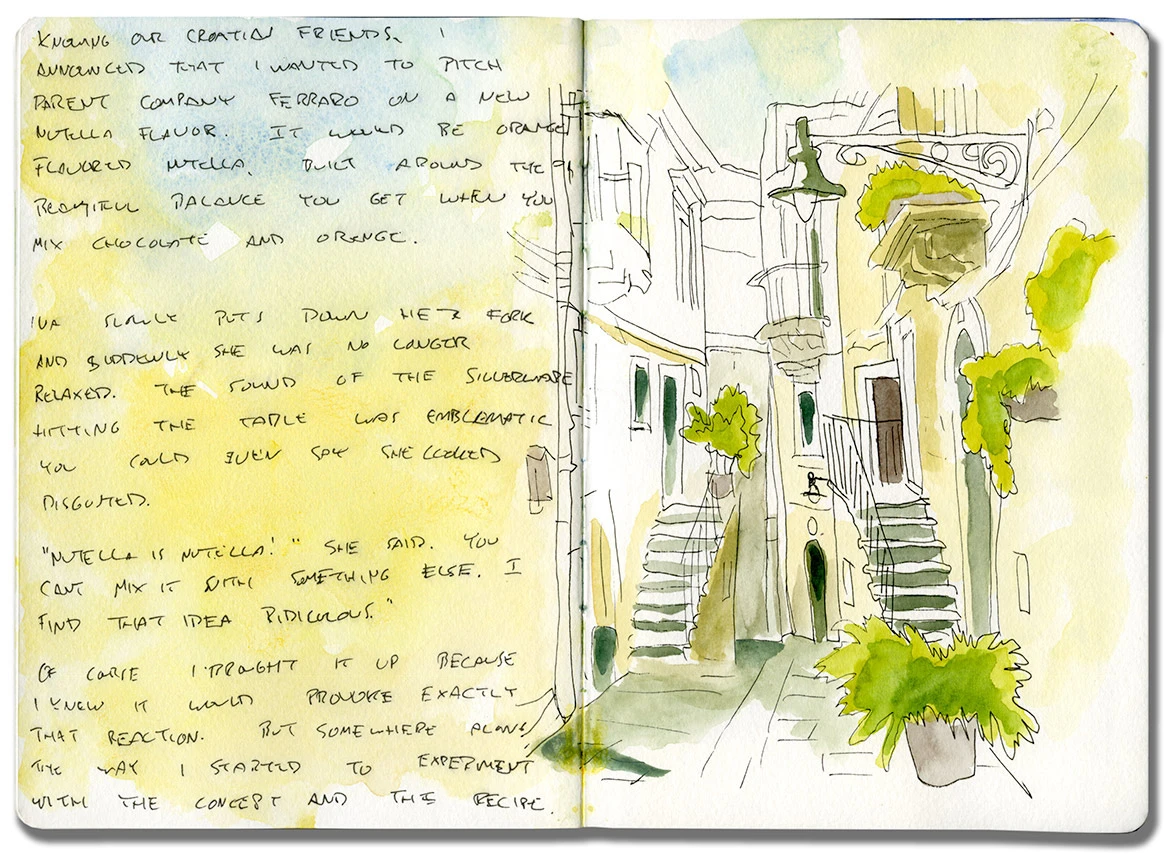 KNOWING OUR CROATIAN FRIENDS, I
ANNOUNCED THAT I WANTED TO PITCH
PARENT COMPANY FERRARO ON A NEW
NUTELLA FLAVOR. IT WOULD BE ORANGE
FLAVORED NUTELLA. BUILT AROUND THE
BEAUTIFUL BALANCE YOU GET WHEN YOU
MIX CHOCOLATE AND ORANGE.
IVA SLOWLY PUTS DOWN HER FORK
AND SUDDENLY SHE WAS NO LONGER
RELAXED. THE SOUND OF THE SILVERWARE
HITTING THE TABLE WAS EMBLEMATIC
YOU COULD EVEN SAY SHE LOOKED
DISGUSTED.
"NUTELLA IS NUTELLA!" SHE SAID. YOU
CANT MIX IT WITH SOMETHING ELSE. I
FIND THAT IDEA RIDICULOUS."
OF CORSE I BROUGHT IT UP BECAUSE
I KNEW IT WOULD PROVOKE EXACTLY
THAT REACTION. BUT SOMEWHERE ALONG
THE WAY I STARTED TO EXPERIMENT
WITH THE CONCEPT AND THE RECIPE.